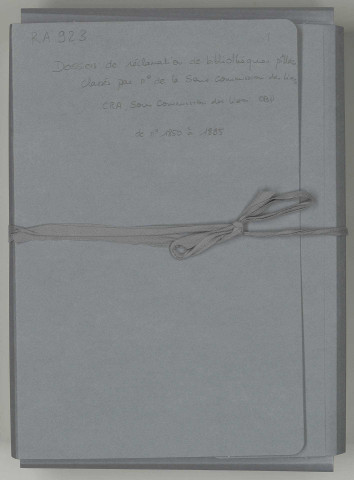 RA 923
Dossiers de réclamation de bibliothèques pillées
classés par n° de la Sous commission des livres
CRA, Sous Commission des livres
de n° 1850 à 1885